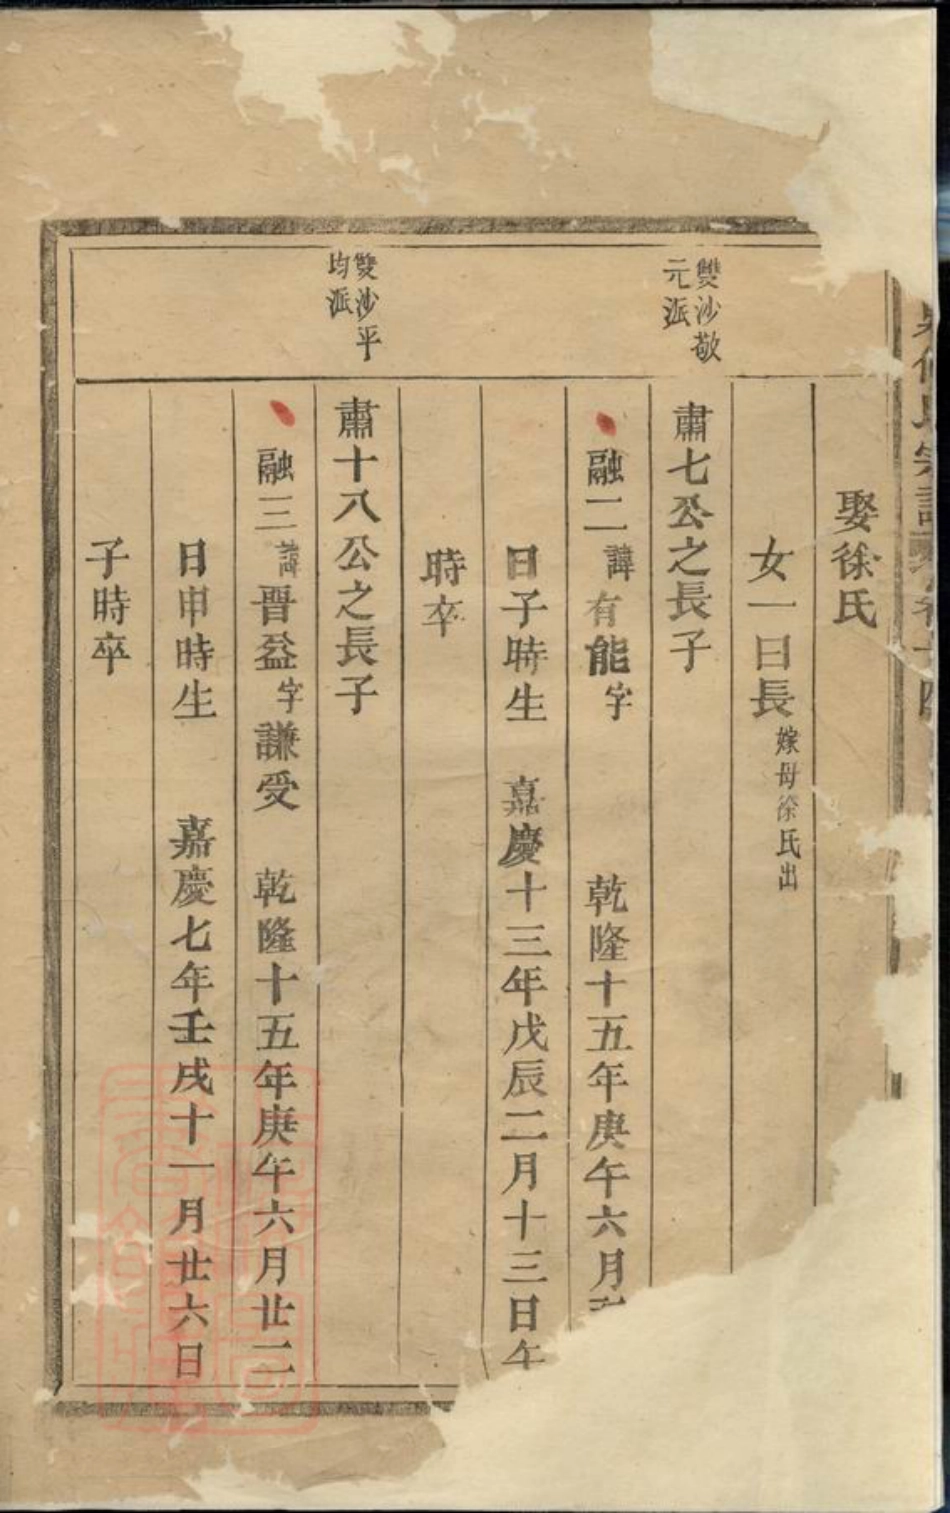 氏宗譜
娶徐氏
女一曰長嫁母徐氏出
雙沙敬
元派
肅七公之長子
融二諱有能字 乾隆十五年庚午六月
日子時生 嘉慶十三年戊辰二月十三日午
時卒
雙沙平
均派
肅十八公之長子
融三諱晋益字謙受 乾隆十五年庚午六月廿二
日申時生 嘉慶七年壬戌十一月廿六日
子時卒